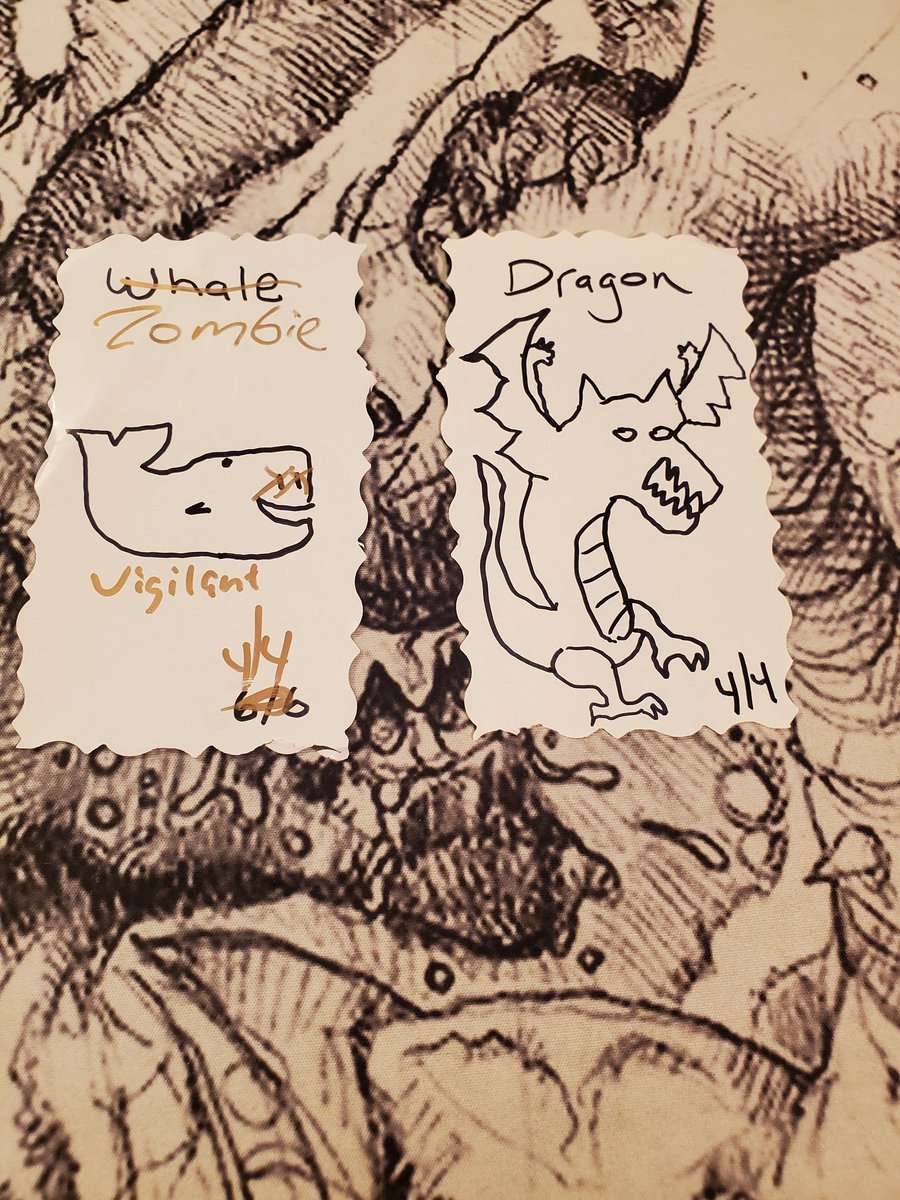 Whale
Zombie
Vigilant
4/4
6/6
Dragon
4/4